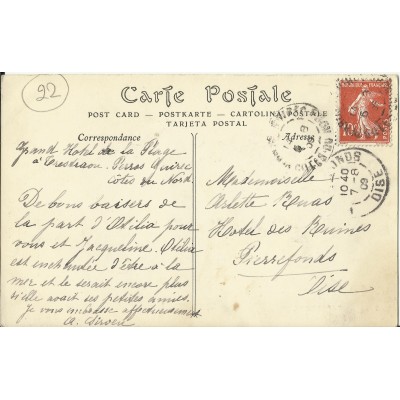 22
Carte Postale
POST CARD — POSTKARTE — CARTOLINA POSTALE
TARJETA POSTAL
Correspondance
Grand Hotel de la Plage
à Trestraou. Perros Guirec
Côtes du Nord.
De bons baisers de
la part d'Odilia pour
vous et Jacqueline. Odilia
est enchantée d'être à la
mer et le serait encore plus
si elle avait ses petites amies.
Je vous embrasse affectueusement
Mademoiselle
Arlette
Hotel des Ruines
Pierrefonds
Oise.
10
10 40
-8
09
OISE